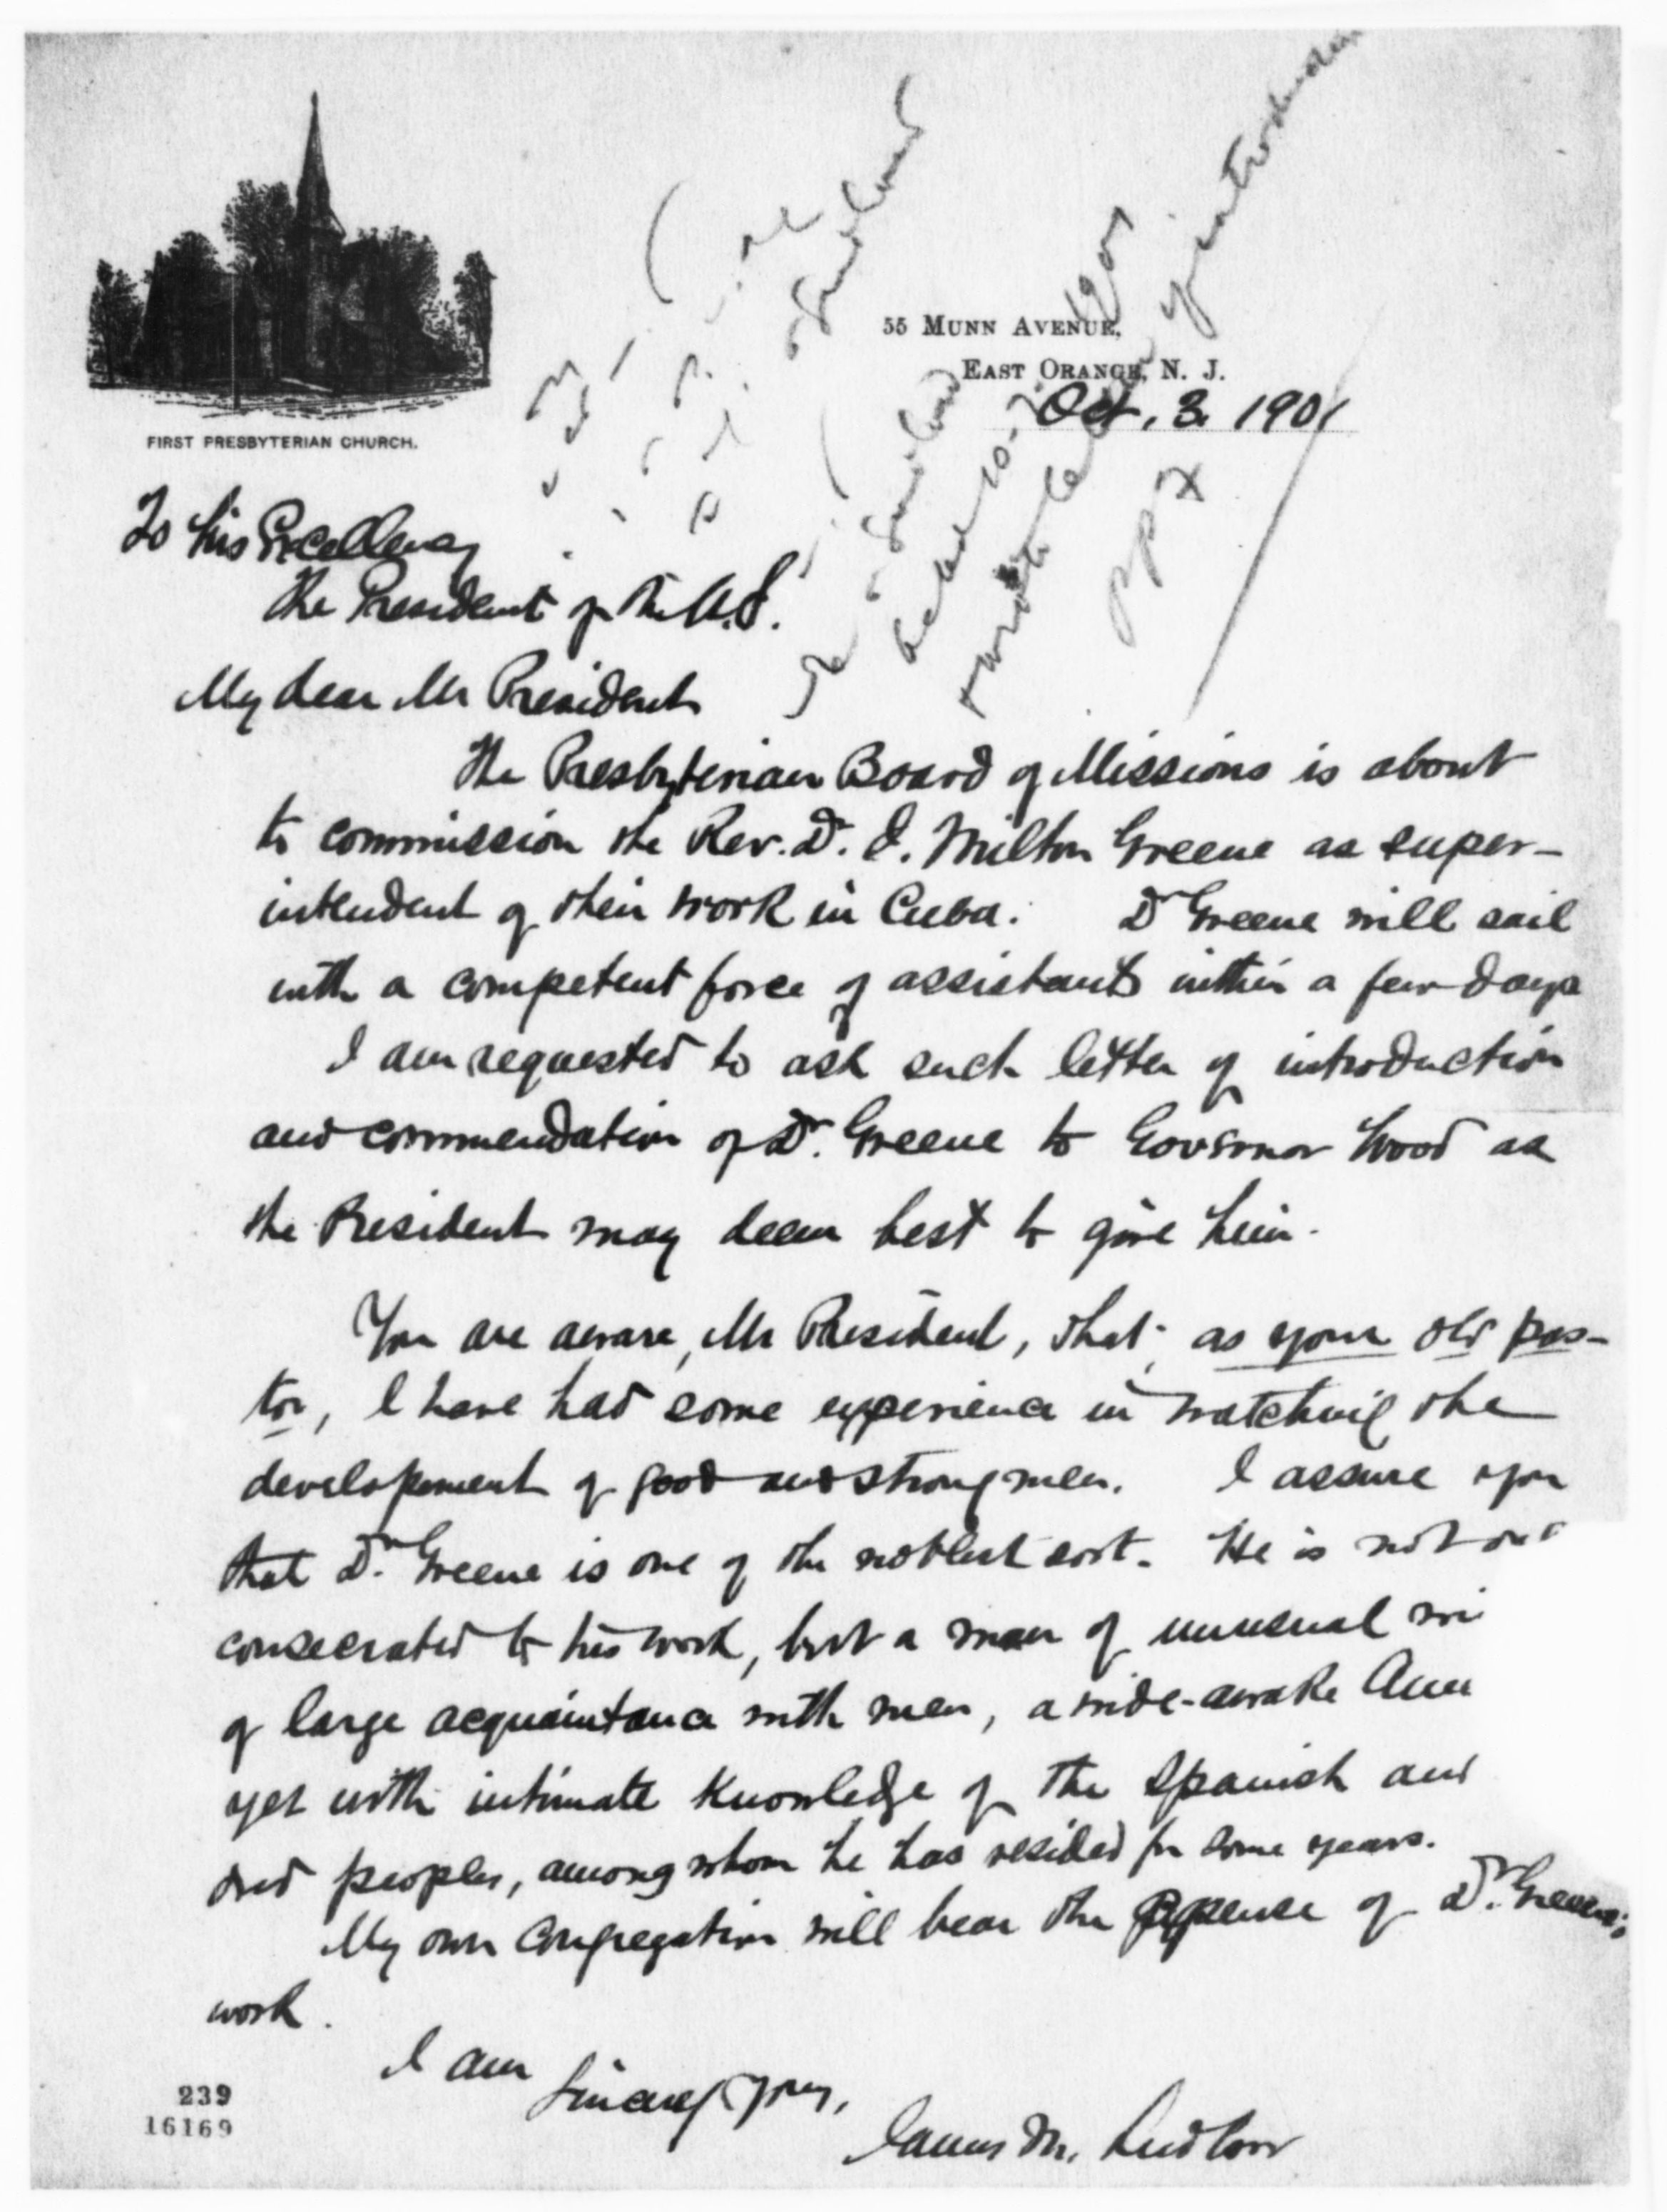 FIRST PRESBYTERIAN CHURCH.
55 MUNN AVENUE,
EAST ORANGE, N. J.
Oct. 3. 1901
To his Excellency
The President of the U.S.
My dear Mr President
The Presbyterian Board of Missions is about
to commission the Rev. Dr. J. Milton Greene as super-
intendent of their work in Cuba. Dr Greene will sail
with a competent force of assistants within a few days
I am requested to ask such letter of introduction
and commendation of Dr. Greene to Governor Wood as
the President may deem best to give him.
You are aware, Mr President, that, as your old pas-
tor, I have had some experience in watching the
development of good and strong men. I assure you
that Dr. Greene is one of the noblest sort. He is not
consecrated to his work, but a man of unusual wi
of large acquaintance with men, a wide-awake Ame
yet with intimate knowledge of the Spanish and
dred peoples, among whom he has resided for some years.
My own Congregation will bear the expense of Dr. Greene's
work.
I am
Sincerely yours,
James M. Ludlow
239
16169